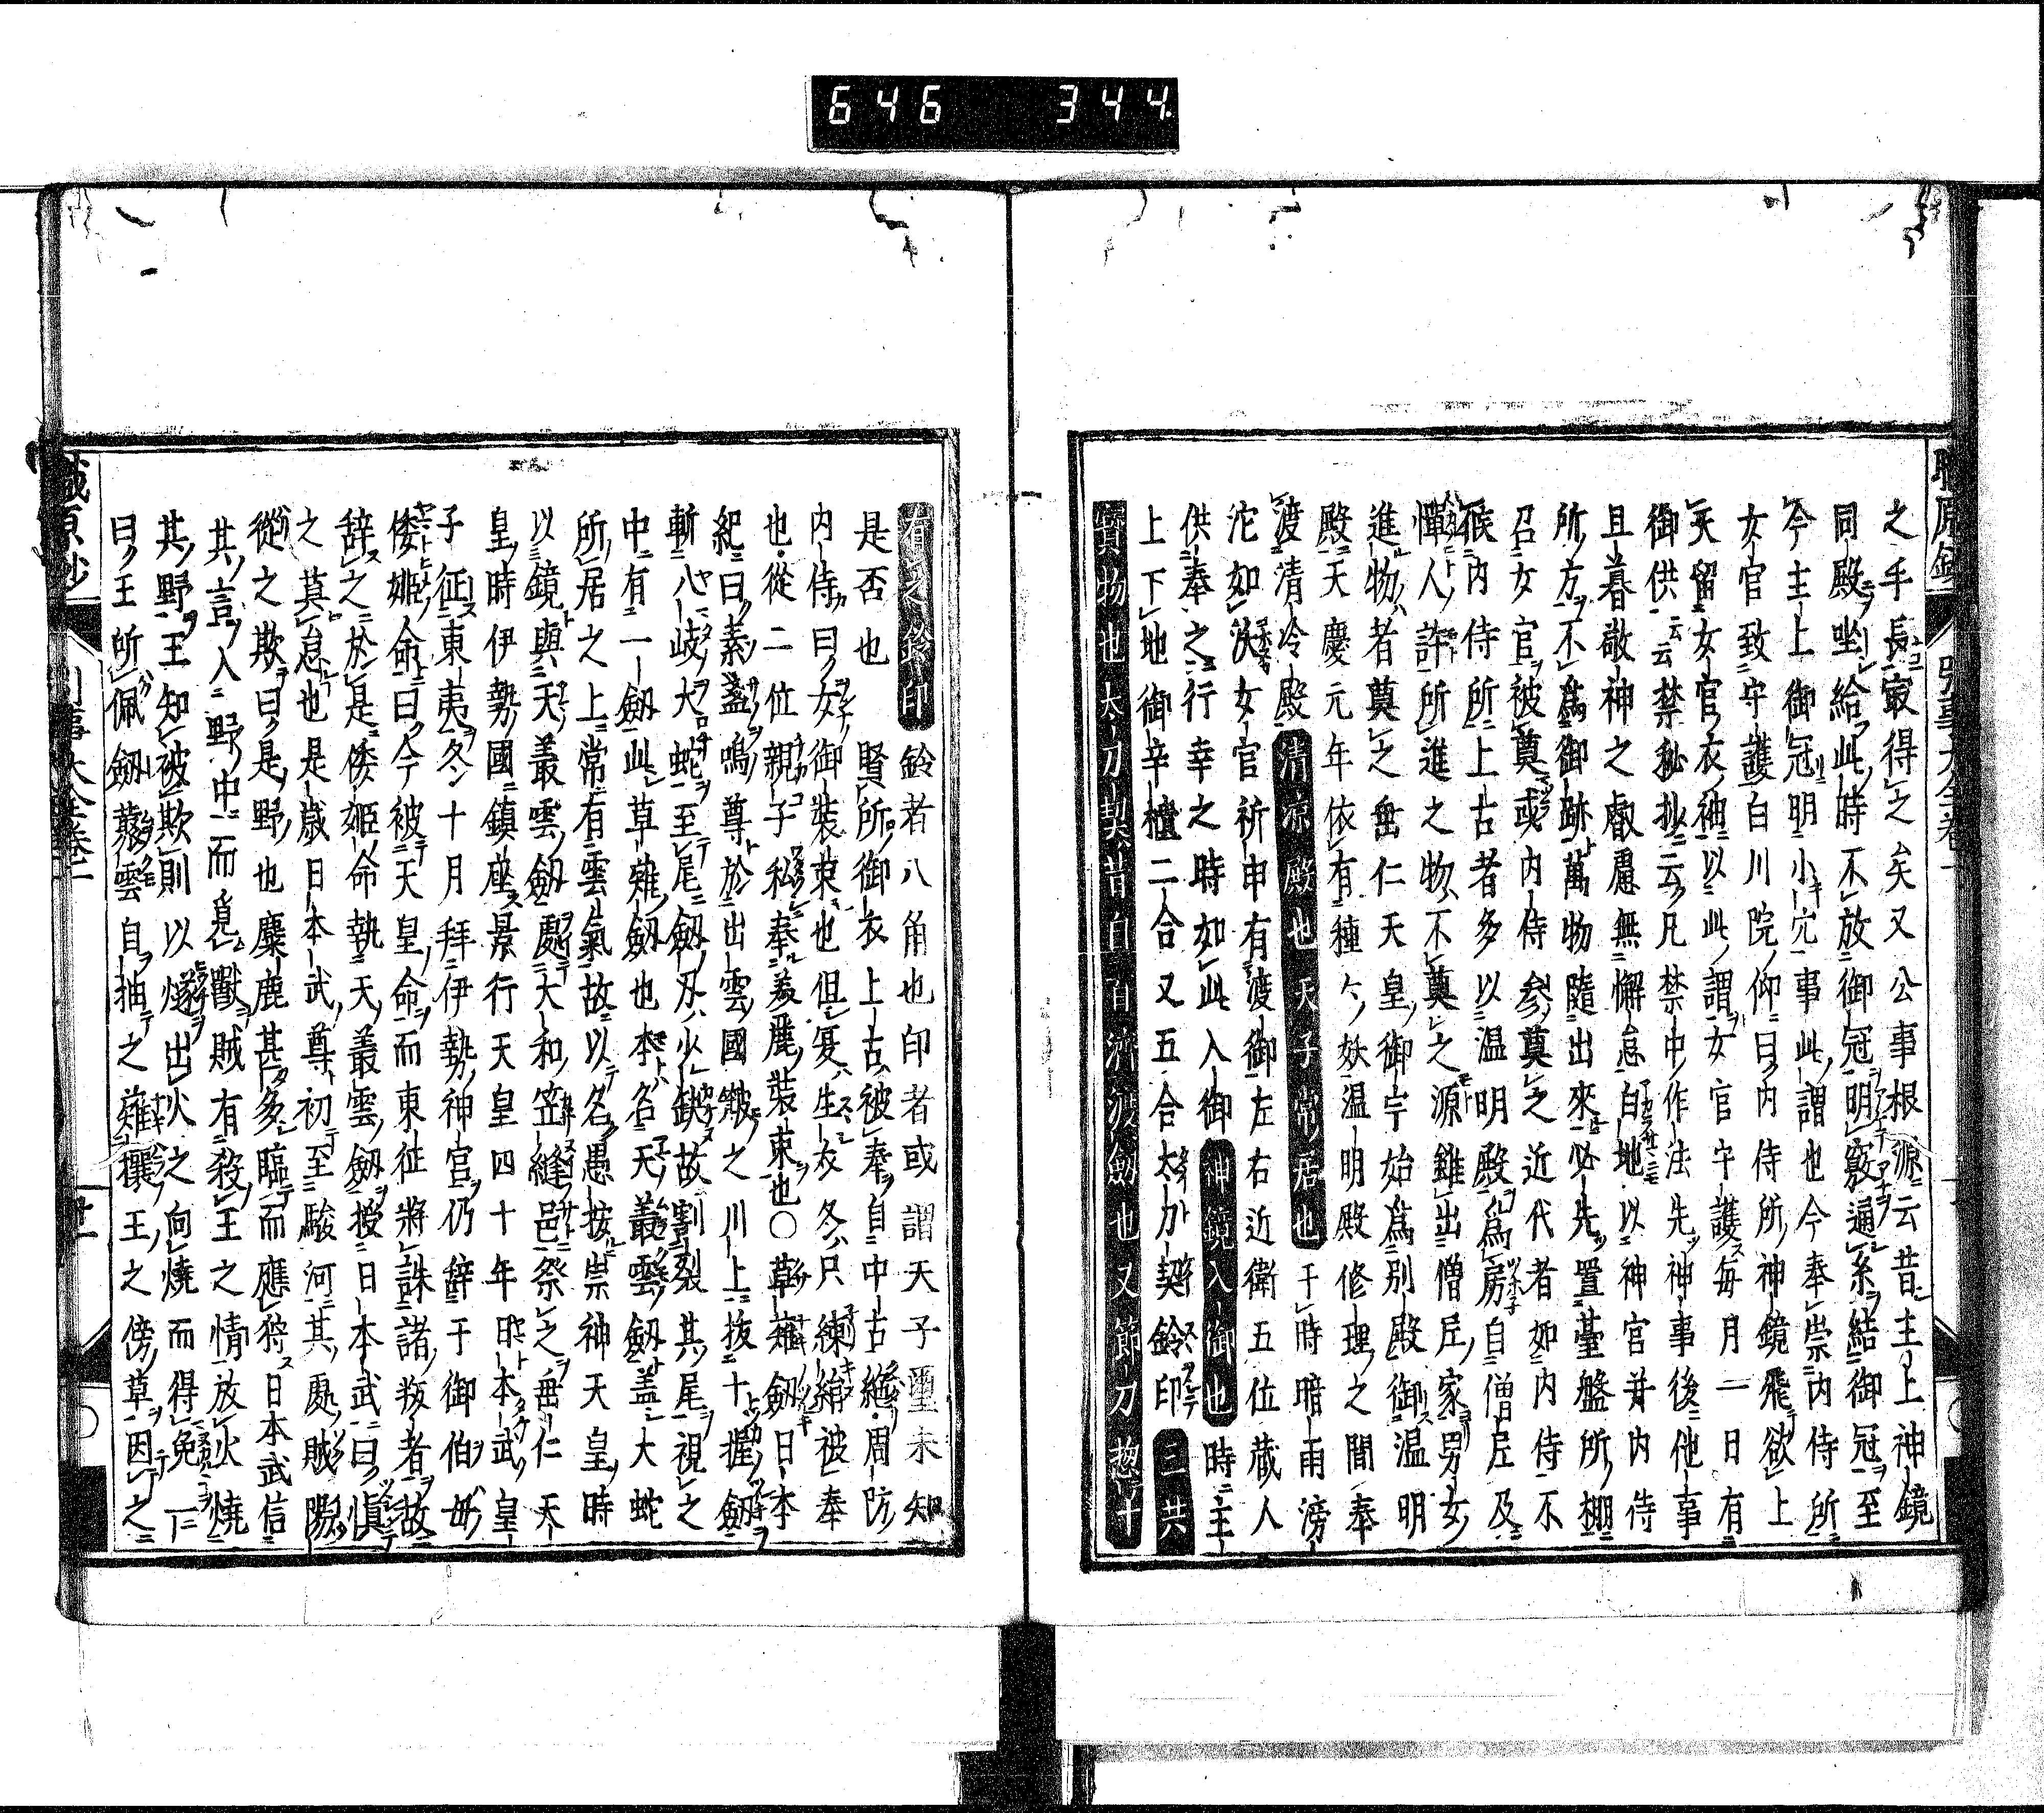 646 344.
之手長最得之矣又公事根源云昔主上神鏡
同殿坐給此時不放御冠明竅通糸結御冠至
今主上御冠明小穴事此謂也今奉崇内侍所
女官致守護白川院仰曰内侍所神鏡飛欲上
天留女官衣袖以此謂女官守護毎月一日有
御供云云禁秘抄云凡禁中作法先神事後他事
且暮敬神之叡慮無懈怠白地以神官并内侍
所方不爲御跡萬物隨出來必先置臺盤所棚
召女官被奠或内侍參奠之近代者如内侍不
候内侍所上古者多以温明殿爲房自僧尼及
憚人許所進之物不奠之源雖出僧尼家男女
進物者奠之垂仁天皇御宇始爲別殿御温明
殿天慶元年依有種々妖温明殿修理之間奉
渡清冷殿清凉殿也天子常居也于時暗雨滂
沱如決女官祈申有渡御左右近衛五位蔵人
供奉之行幸之時如此入御神鏡入御也時主
上下地御辛櫃二合又五合太刀契鈴印三共
寶物也大刀契昔自百濟渡劔也又節刀惣十
有之鈴印鈴者八角也印者或謂天子璽未知
是否也 賢所御衣上古被奉自中古絶周防
内侍曰女御裝束也但夏生衣冬只練絹被奉
也從二位親子私奉美麗裝束也○草薙劔日本
紀曰素盞嗚尊於出雲國簸之川上抜十握劔
斬八岐大蛇至尾劔刃少缺故割裂其尾視之
中有一劔此草薙劔也本名天叢雲劔蓋大蛇
所居之上常有雲氣故以名愚按崇神天皇時
以鏡與天叢雲劔處大和笠縫邑祭之垂仁天
皇時伊勢國鎮座景行天皇四十年日本武皇
子征東夷冬十月拜伊勢神宮仍辞于御伯母
倭姫命曰今被天皇命而東征將誅諸叛者故
辞之於是倭姫命執天叢雲劔授日本武曰慎
之莫怠也是歳日本武尊初至駿河其處賊陽
從之欺曰是野也麋鹿甚多臨而應狩日本武信
其言入野中而覓獸賊有殺王之情放火燒
其野王知被欺則以燧出火之向燒而得免一
曰王所佩劔叢雲自抽之薙攘王之傍草因之